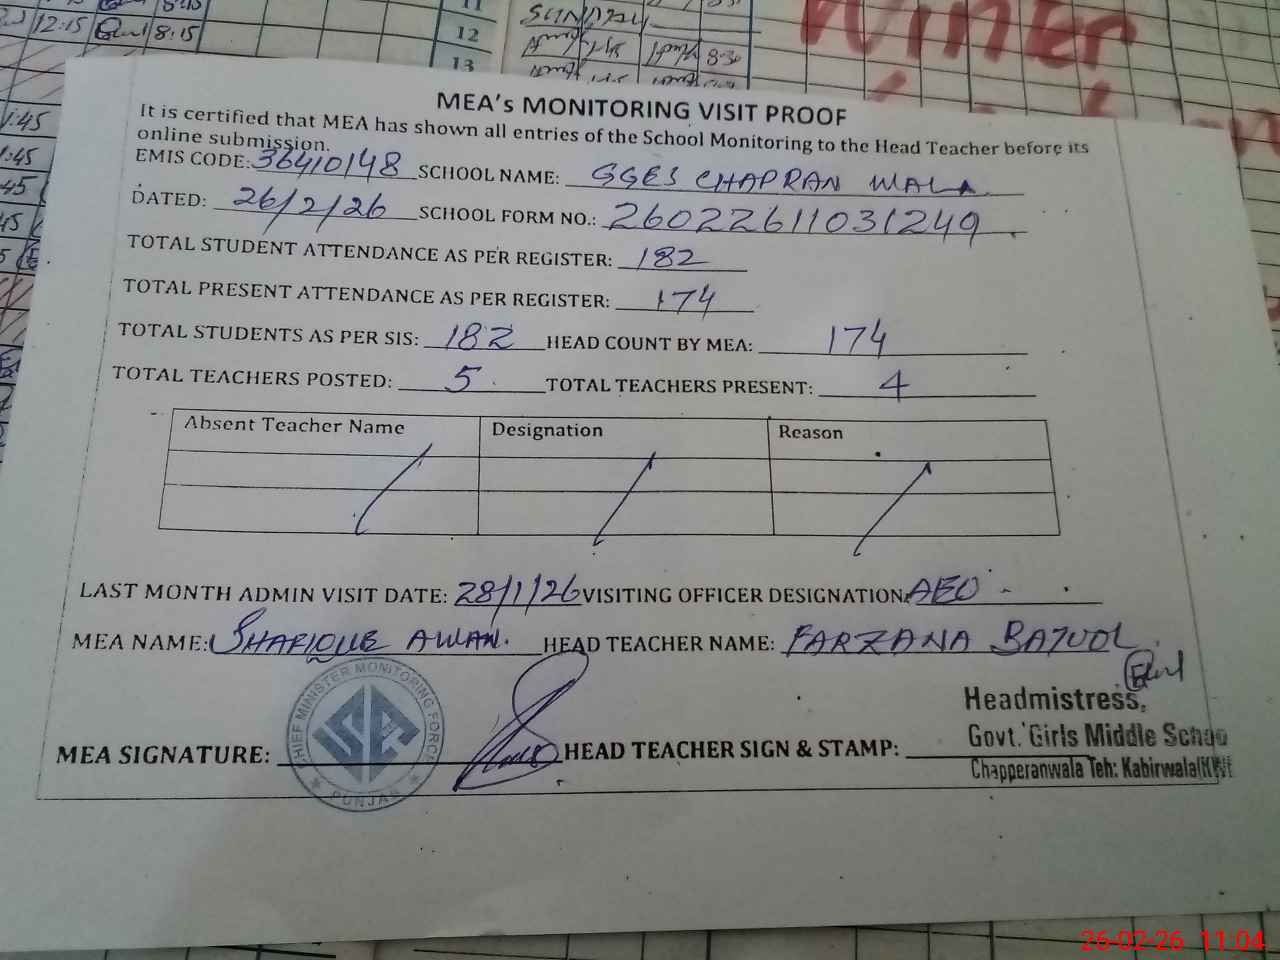 12:15 8:15
11
12
13
SUNDAY
8-30
Winter
1:45
1:45
:45
:45
MEA's MONITORING VISIT PROOF
It is certified that MEA has shown all entries of the School Monitoring to the Head Teacher before its
online submission.
EMIS CODE: 36410148 SCHOOL NAME: GGES CHAPRAN WALA
DATED: 26/2/26 SCHOOL FORM NO.: 26022611031249
TOTAL STUDENT ATTENDANCE AS PER REGISTER: 182
TOTAL PRESENT ATTENDANCE AS PER REGISTER: 174
TOTAL STUDENTS AS PER SIS: 182 HEAD COUNT BY MEA: 174
TOTAL TEACHERS POSTED: 5 TOTAL TEACHERS PRESENT: 4
Absent Teacher Name Designation Reason
LAST MONTH ADMIN VISIT DATE: 28/1/26 VISITING OFFICER DESIGNATION: AEO
MEA NAME: SHAFIQUE AWAN. HEAD TEACHER NAME: FARZANA BATOOL
CHIEF MINISTER MONITORING FORCE
PUNJAB
MEA SIGNATURE: HEAD TEACHER SIGN & STAMP:
Headmistress,
Govt. Girls Middle Schoo
Chapperanwala Teh: Kabirwala(KW
26-02-26 11:04